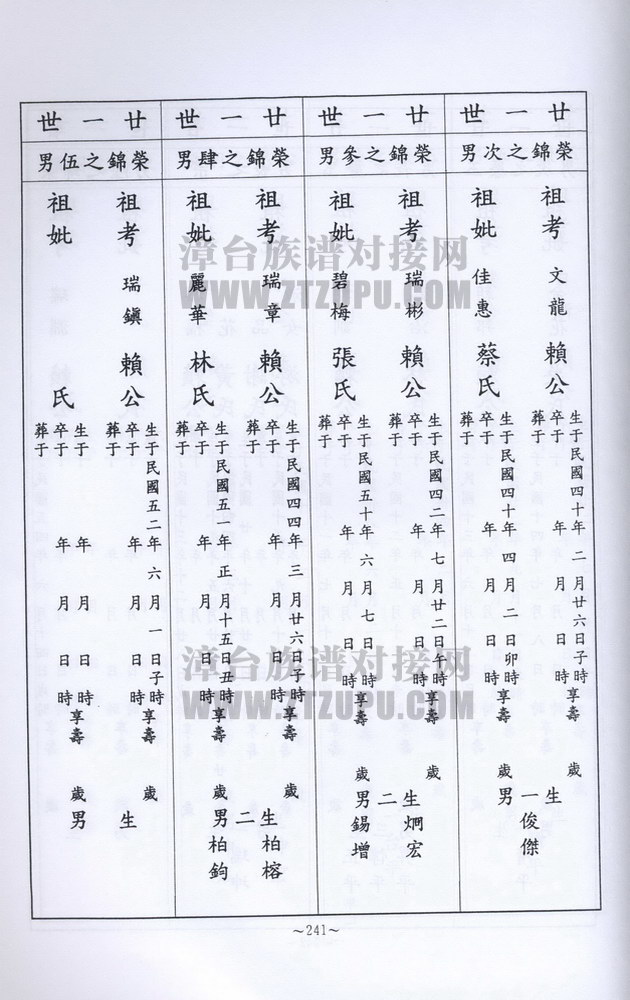 廿一世
榮錦之次男
祖考 文龍 賴公
生于民國四十年二月廿六日子時享壽 歲
卒于 年 月 日 時
葬于
祖妣 佳惠 蔡氏
生于民國四十年四月二日卯時享壽 歲
卒于 年 月 日 時
葬于
生一男
俊傑
廿一世
榮錦之參男
祖考 瑞彬 賴公
生于民國四二年七月廿二日午時享壽 歲
卒于 年 月 日 時
葬于
祖妣 碧梅 張氏
生于民國五十年六月七日 時享壽 歲
卒于 年 月 日 時
葬于
生二男
炯宏
錫增
廿一世
榮錦之肆男
祖考 瑞章 賴公
生于民國四四年三月廿六日子時享壽 歲
卒于 年 月 日 時
葬于
祖妣 麗華 林氏
生于民國五一年正月十五日丑時享壽 歲
卒于 年 月 日 時
葬于
生二男
柏榕
柏鈞
廿一世
榮錦之伍男
祖考 瑞鎮 賴公
生于民國五二年六月一日子時享壽 歲
卒于 年 月 日 時
葬于
祖妣 氏
生于 年 月 日 時享壽 歲
卒于 年 月 日 時
葬于
生 男
～241～
漳台族谱对接网
WWW.ZTZUPU.COM
漳台族谱对接网
WWW.ZTZUPU.COM